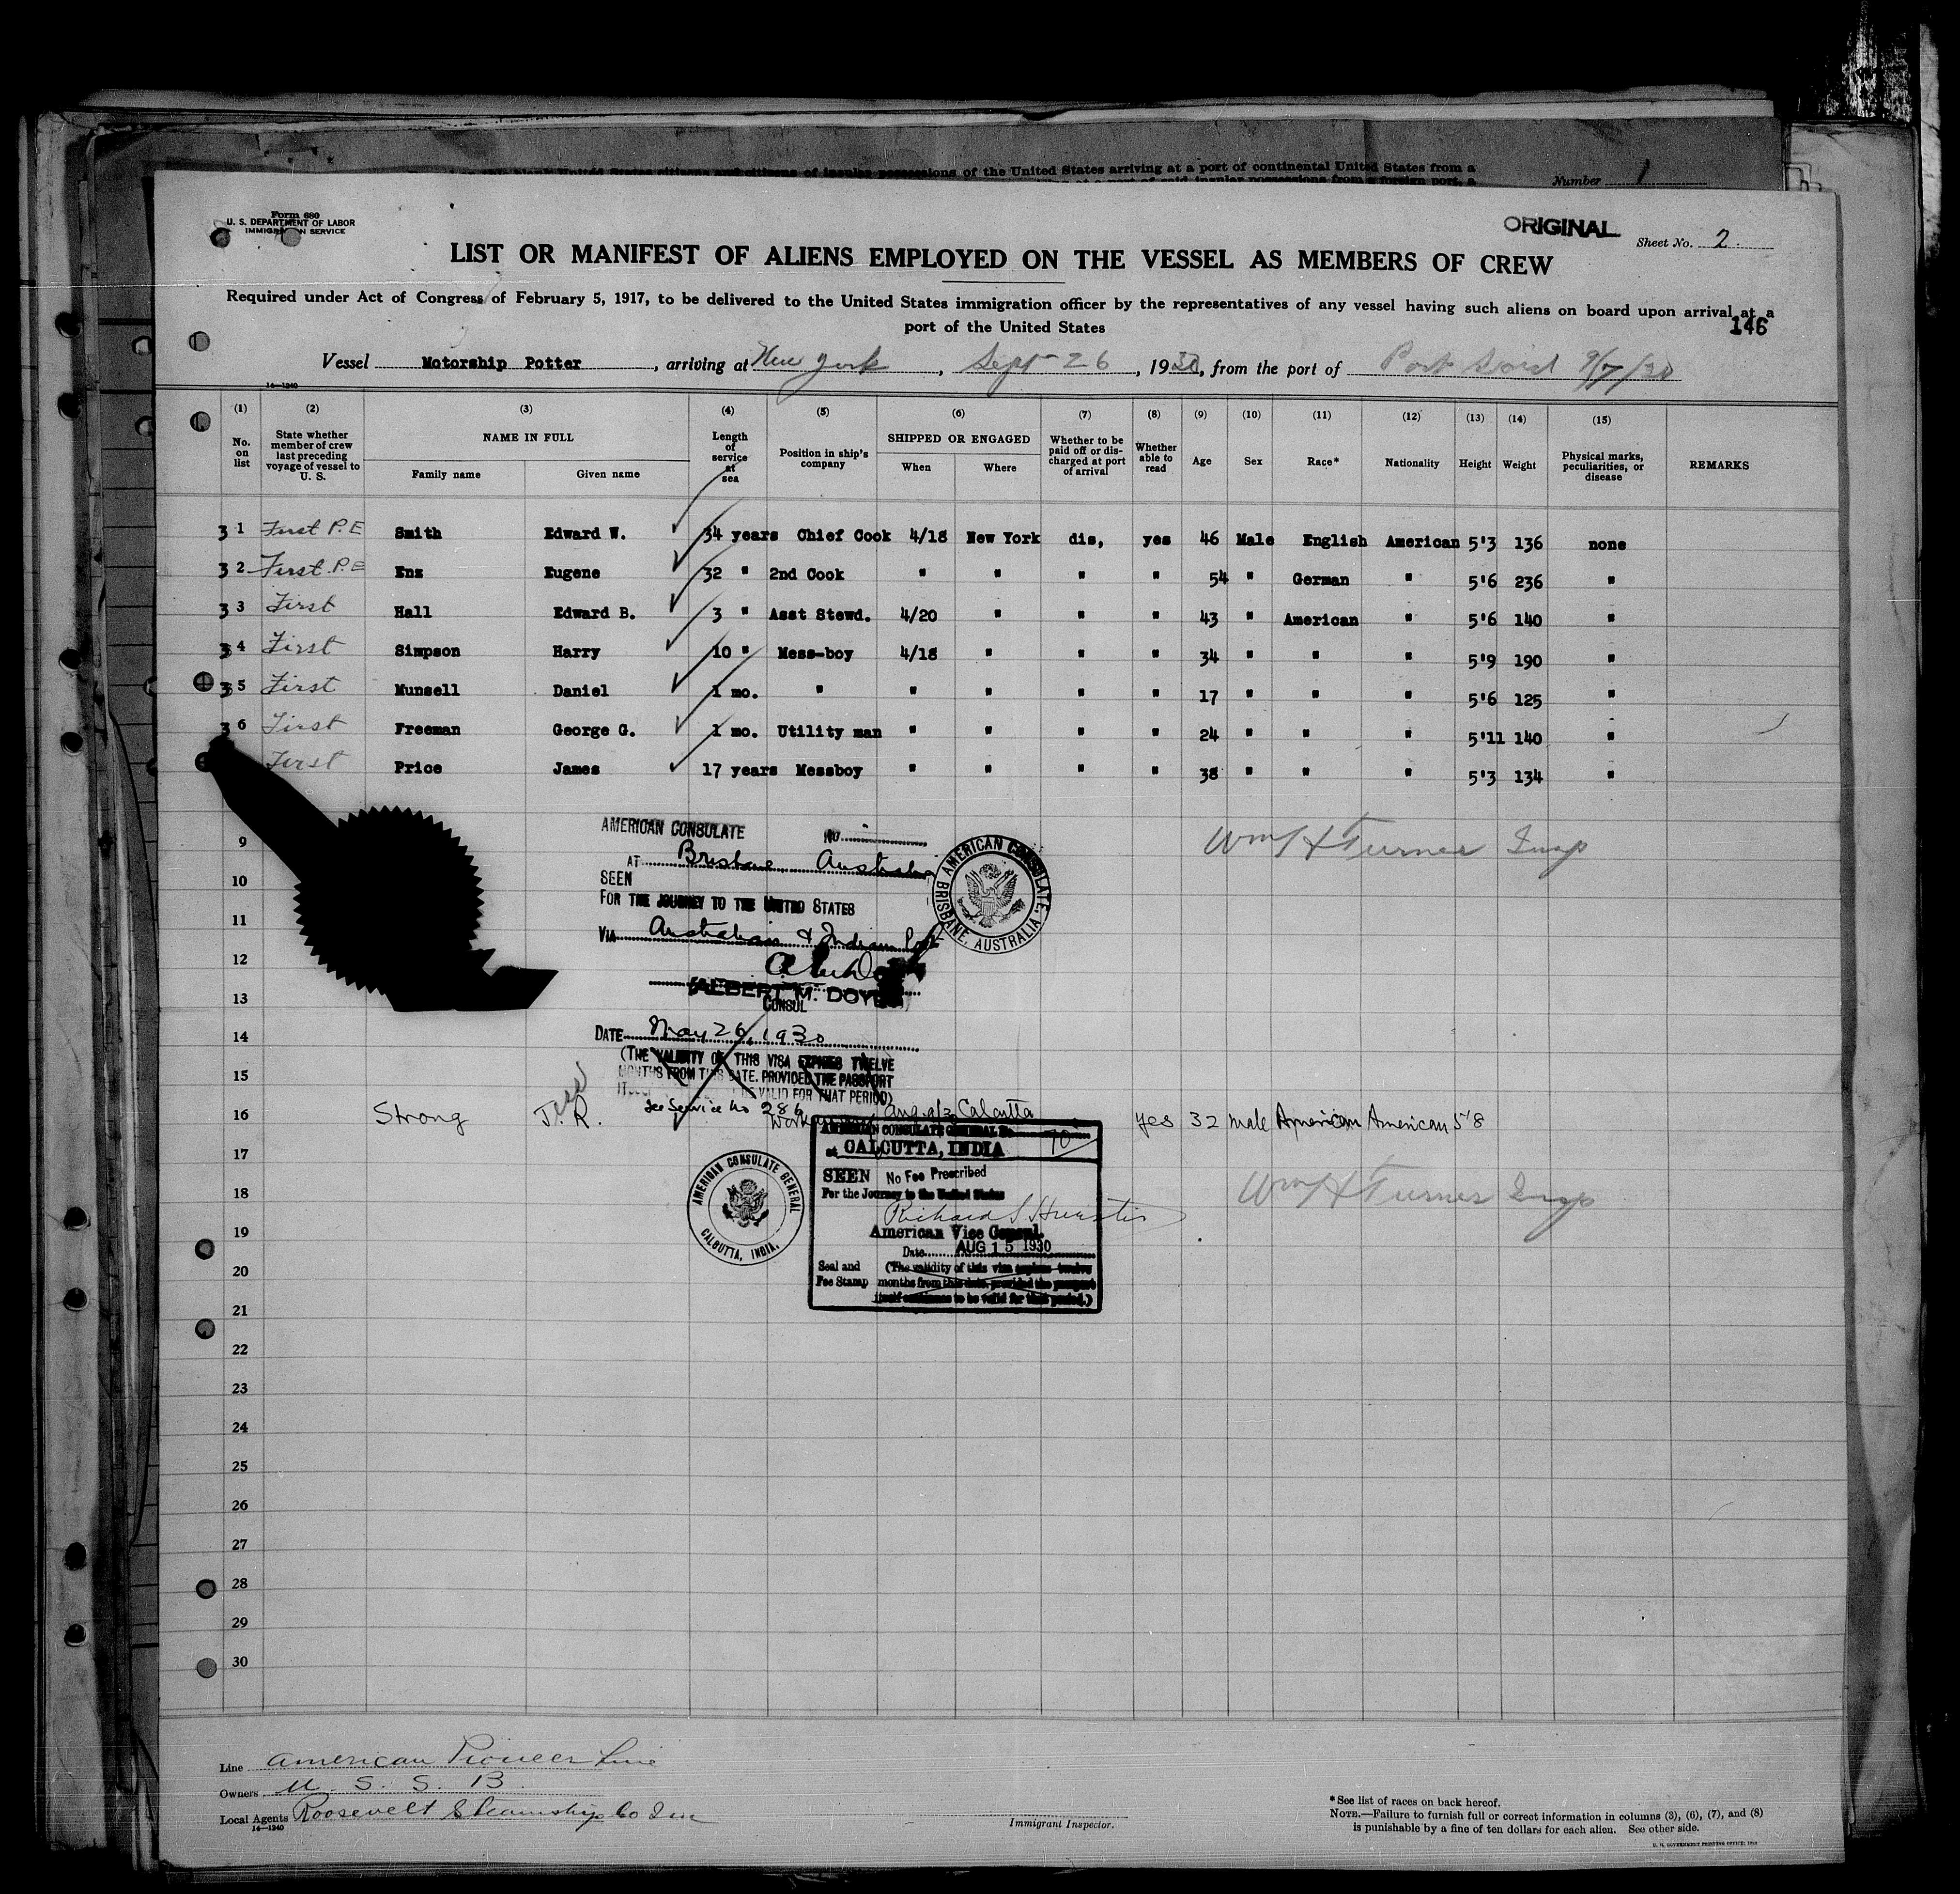 of the United States arriving at a port of continental United States from a
Number 1
Form 680
U. S. DEPARTMENT OF LABOR
IMMIGRATION SERVICE
ORIGINAL
Sheet No. 2.
LIST OR MANIFEST OF ALIENS EMPLOYED ON THE VESSEL AS MEMBERS OF CREW
Required under Act of Congress of February 5, 1917, to be delivered to the United States immigration officer by the representatives of any vessel having such aliens on board upon arrival at a
port of the United States
146
Vessel Motorship Potter, arriving at New York, Sept 26, 1930, from the port of Port Said 9/7/30
14-1240
(1) (2) (3) (4) (5) (6) (7) (8) (9) (10) (11) (12) (13) (14) (15)
No. on list
State whether member of crew last preceding voyage of vessel to U. S.
NAME IN FULL
Family name
Given name
Length of service at sea
Position in ship's company
SHIPPED OR ENGAGED
When
Where
Whether to be paid off or discharged at port of arrival
Whether able to read
Age
Sex
Race*
Nationality
Height
Weight
Physical marks, peculiarities, or disease
REMARKS
3 1 First P.E Smith Edward W. 34 years Chief Cook 4/18 New York dis, yes 46 Male English American 5'3 136 none
3 2 First P.E Enz Eugene 32 " 2nd Cook " " " " 54 " German " 5'6 236 "
3 3 First Hall Edward B. 3 " Asst Stewd. 4/20 " " " 43 " American " 5'6 140 "
3 4 First Simpson Harry 10 " Mess-boy 4/18 " " " 34 " " " 5'9 190 "
3 5 First Munsell Daniel 1 mo. " " " " " 17 " " " 5'6 125 "
3 6 First Freeman George G. 1 mo. Utility man " " " " 24 " " " 5'11 140 "
First Price James 17 years Messboy " " " " 38 " " " 5'3 134 "
AMERICAN CONSULATE No
9
AT Brisbane Australia
Wm H Turner Insp
10
SEEN
FOR THE JOURNEY TO THE UNITED STATES
11
VIA Australian & Indian
AMERICAN CONSULATE, BRISBANE, AUSTRALIA
12
(ALBERT M. DOYLE)
13
CONSUL
14
DATE May 26, 1930
(THE VALIDITY OF THIS VISA EXPIRES TWELVE
15
MONTHS FROM THIS DATE. PROVIDED THE PASSPORT
VALID FOR THAT PERIOD)
See Service No 286
16 Strong J. R. Aug. 9/30 Calcutta yes 32 male American American 5'8
17
AMERICAN CONSULATE GENERAL No 70
at CALCUTTA, INDIA
18
SEEN No Fee Prescribed
For the Journey to the United States
Wm H Turner Insp
AMERICAN CONSULATE GENERAL CALCUTTA, INDIA.
19
American Vice Consul.
Date AUG 15 1930
20
Seal and Fee Stamp
(The validity of this visa expires twelve
months from this date, provided the passport
itself continues to be valid for that period.)
21
22
23
24
25
26
27
28
29
30
Line American Pioneer Line
Owners U. S. S. B.
Local Agents Roosevelt Steamship Co Inc
14-1240
Immigrant Inspector.
* See list of races on back hereof.
NOTE.—Failure to furnish full or correct information in columns (3), (6), (7), and (8)
is punishable by a fine of ten dollars for each alien. See other side.